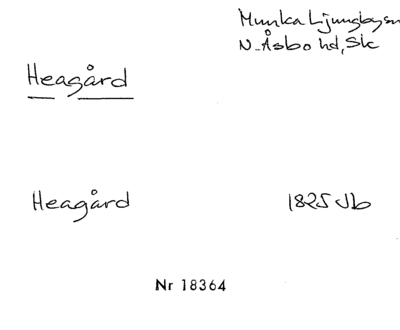 Munka Ljungbysn
N. Åsbo hd, Sk
Heagård
Heagård 1825 Jb
Nr 18364